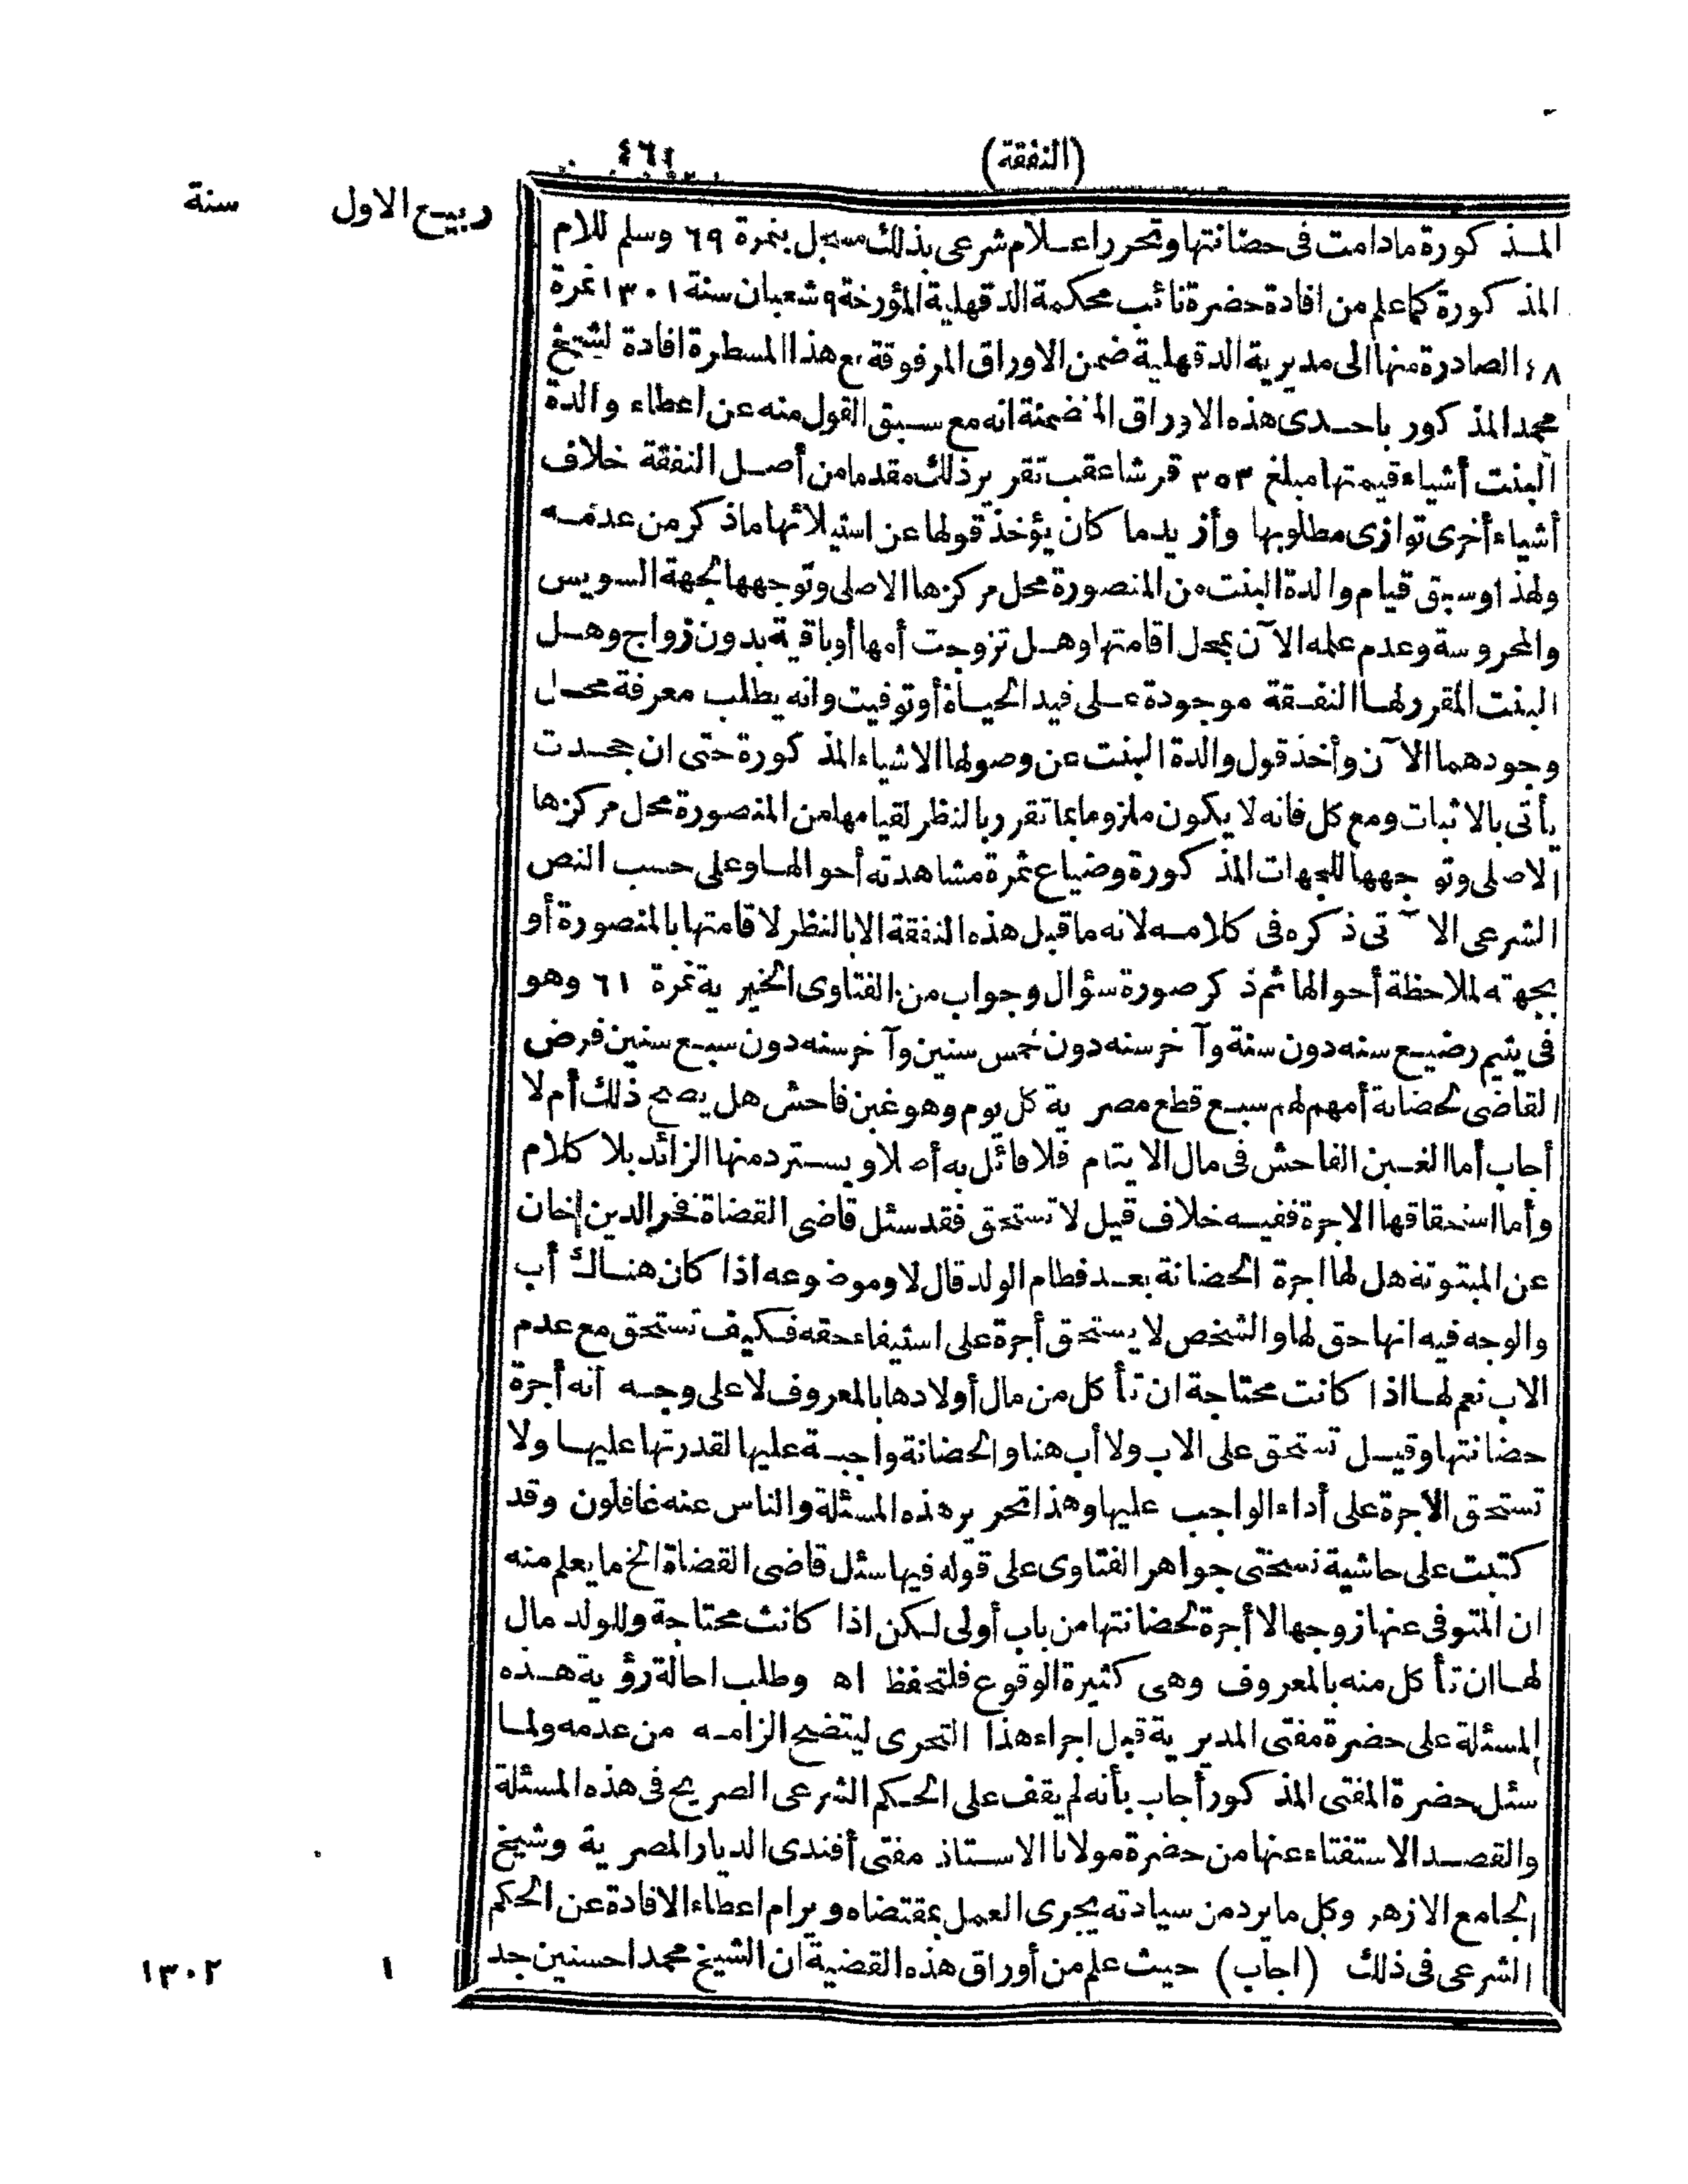 (النفقة)
٤٦١
ربيع الاول سنة
المذكورة مادامت فى حضانتها وتحرر اعلام شرعى بذلك مسجل بنمرة ٦٩ وسلم للام
المذكورة كما علم من افادة حضرة نائب محكمة الدقهلية المؤرخة ٩ شعبان سنة ١٣٠١ نمرة
٤٨ الصادرة منها الى مديرية الدقهلية ضمن الاوراق المرفوقة مع هذا المسطرة افادة لشيخ
محمد المذكور باحدى هذه الاوراق المتضمنة انه مع سبق القول منه عن اعطاء والدة
البنت أشياء قيمتها مبلغ ٣٥٣ قرشا عقب تقرير ذلك مقدما من أصل النفقة خلاف
أشياء أخرى توازى مطلوبها وأزيد ما كان يؤخذ قولها عن استيلائها ماذكر من عدمه
ولهذا وسبق قيام والدة البنت من المنصورة محل مركزها الاصلى وتوجهها لجهة السويس
والمحروسة وعدم علمه الآن بمحل اقامتها وهل تزوجت أمها أو باقية بدون زواج وهل
البنت المقرر لها النفقة موجودة على قيد الحياة أو توفيت وانه يطلب معرفة محل
وجودهما الآن وأخذ قول والدة البنت عن وصولها الاشياء المذكورة حتى ان جحدت
يأتى بالاثبات ومع كل فانه لا يكون ملزوما بما تقرر بالنظر لقيامها من المنصورة محل مركزها
الاصلى وتوجهها للجهات المذكورة وضياع ثمرة مشاهدته أحوالها وعلى حسب النص
الشرعى الآتى ذكره فى كلامه لانه ما قبل هذه النفقة الا بالنظر لاقامتها بالمنصورة أو
بجهته لملاحظة أحوالها ثم ذكر صورة سؤال وجواب من الفتاوى الخيرية نمرة ٦١ وهو
فى يتيم رضيع سنه دون سنة وآخر سنه دون خمس سنين وآخر سنه دون سبع سنين فرض
القاضى لحضانة أمهم لهم سبع قطع مصرية كل يوم وهو غبن فاحش هل يصح ذلك أم لا
أجاب أما الغبن الفاحش فى مال الايتام فلا قائل به أصلا ويسترد منها الزائد بلا كلام
وأما استحقاقها الاجرة ففيه خلاف قيل لا تستحق فقد سئل قاضى القضاة فخر الدين خان
عن المبتوتة هل لها اجرة الحضانة بعد فطام الولد قال لا وموضوعه اذا كان هناك أب
والوجه فيه انها حق لها والشخص لا يستحق أجرة على استيفاء حقه فكيف تستحق مع عدم
الاب نعم لها اذا كانت محتاجة ان تأكل من مال أولادها بالمعروف لا على وجه آنه أجرة
حضانتها وقيل تستحق على الاب ولا أب هنا والحضانة واجبة عليها لقدرتها عليها ولا
تستحق الاجرة على أداء الواجب عليها وهذا تحرير هذه المسئلة والناس عنه غافلون وقد
كتبت على حاشية نسختى جواهر الفتاوى على قوله فيها سئل قاضى القضاة الخ ما يعلم منه
ان المتوفى عنها زوجها لا أجرة لحضانتها من باب أولى لكن اذا كانت محتاجة وللولد مال
لها ان تأكل منه بالمعروف وهى كثيرة الوقوع فلتحفظ اه وطلب احالة رؤية هذه
المسئلة على حضرة مفتى المديرية قبل اجراء هذا التحرى ليتضح الزامه من عدمه ولما
سئل حضرة المفتى المذكور أجاب بأنه لم يقف على الحكم الشرعى الصريح فى هذه المسئلة
والقصد الاستفتاء عنها من حضرة مولانا الاستاذ مفتى أفندى الديار المصرية وشيخ
الجامع الازهر وكل ما يرد من سيادته يجرى العمل بمقتضاه ويرام اعطاء الافادة عن الحكم
الشرعى فى ذلك (اجاب) حيث علم من أوراق هذه القضية ان الشيخ محمدا حسنين جد
١ ١٣٠٢